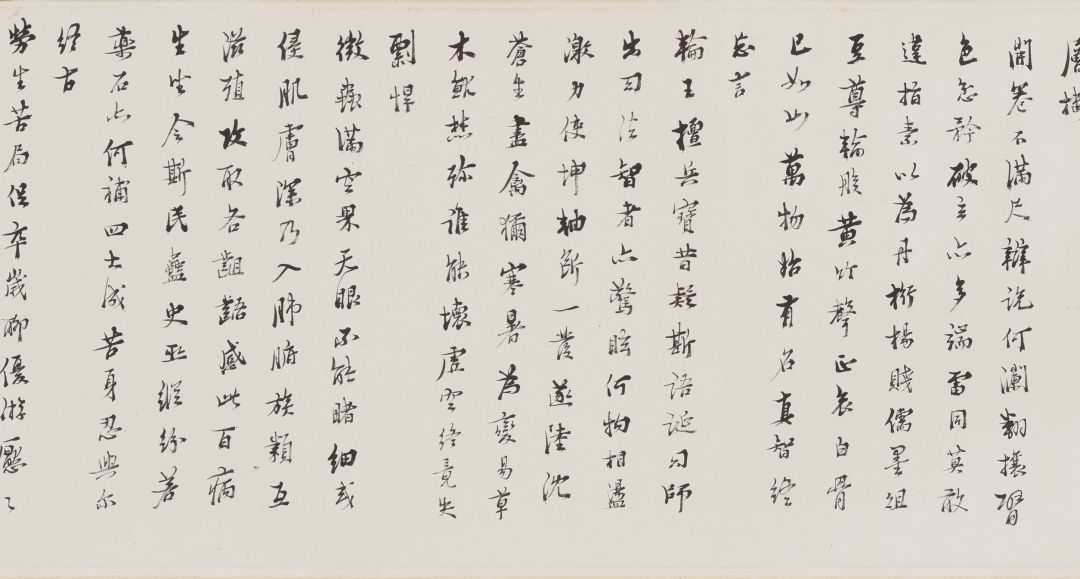 層樓
開卷不滿尺辯說何瀾翻攘
色忽矜破立亦多端雷同莫敢
違指素以為丹桁楊賤儒墨俎
豆尊輪般黃竹聲正哀白骨
已如山萬物始有名真智終
忘言
輪王擅兵寶昔疑斯語誕匈師
出匈法智者亦驚眩何物相盪
激力使坤軸斷一發遂陸沈
蒼生盡禽獮寒暑為變易草
木就焚誰能壞虛空終竟失
剽悍
微蟲滿空界天眼不能睹細或
侵肌膚深乃入肺腑族類互
滋殖攻取各齟齬感此百病
生坐令斯民蠱史巫縱紛若
藥石亦何補四大成苦身忍與爾
終古
勞生苦局促卒歲聊優游